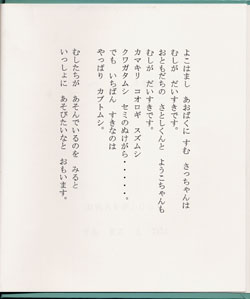 よこはまし あおばくに すむ さっちゃんは
むしが だいすきです。
おともだちの さとしくんと ようこちゃんも
むしが だいすきです。
カマキリ コオロギ スズムシ
クワガタムシ セミのぬけがら・・・・・・。
でも いちばん すきなのは
やっぱり カブトムシ。
むしたちが あそんでいるのを みると
いっしょに あそびたいなと おもいます。